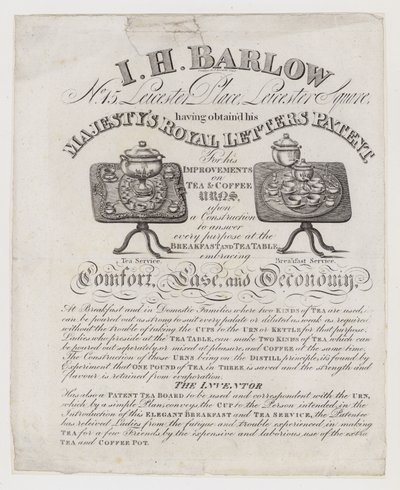 I. H. BARLOW
No. 15 Leicester Place, Leicester Square,
having obtain'd his
MAJESTY'S ROYAL LETTERS PATENT,
For his
IMPROVEMENTS
on
TEA & COFFEE
URNS,
upon
a Construction
to answer
every purpose at the
BREAKFAST AND TEA TABLE
embracing
Tea Service.
Breakfast Service.
Comfort, Ease, and Oeconomy.
At Breakfast and in Domestic Families where two KINDS of TEA are used,
can be poured out as strong to suit every palate or diluted as weak as required
without the trouble of taking the CUPS to the URN or KETTLE for that purpose.
Ladies who preside at the TEA TABLE, can make TWO KINDS of TEA which can
be poured out seperately or mixed at pleasure, and COFFEE at the same time.
The Construction of those URNS being on the DISTILL principle, its found by
Experiment that ONE POUND of TEA in THREE is saved and the strength and
flavour is retained from evaporation.
THE INVENTOR
Has also a PATENT TEA BOARD to be used and correspondent with the URN,
which by a simple Plan, conveys the CUP to the Person intended, in the
Introduction of this ELEGANT BREAKFAST and TEA SERVICE, the Patentee
has releived Ladies from the fatigue and trouble experienced in making
TEA for a few Friends, by the expensive and laborious use of the extra
TEA and COFFEE POT.